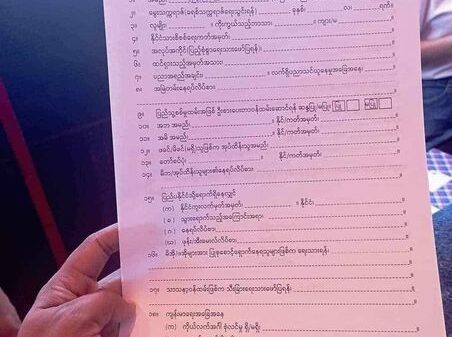 ၂။ မွေးသက္ကရာဇ်(ခရစ်သက္ကရာဇ်ရေးသွင်းရန်) ခုနှစ်၊ လ၊ ရက်။
၃။ လူမျိုး ။ ကိုးကွယ်သည့်ဘာသာ ။ ကျား/မ
၄။ နိုင်ငံသားစိစစ်ရေးကတ်အမှတ်၊
၅။ အလုပ်အကိုင်(ပြည့်စုံစွာရေးသားဖော်ပြရန်)
၆။ ထင်ရှားသည့်အမှတ်အသား၊
၇။ ပညာအရည်အချင်း၊ ။ လက်ရှိပညာသင်ယူနေမှုအခြေအနေ၊
၈။ အမြဲတမ်းနေရပ်လိပ်စာ၊
၉။ ပြည်သူ့စစ်မှုထမ်းအဖြစ် ဦးစားပေးတာဝန်ထမ်းဆောင်ရန် ဆန္ဒပြု/မပြု။ ပြု မပြု
၁၀။ အဘ အမည်၊ ။ နိုင်/ကတ်အမှတ်၊
၁၁။ အမိ အမည်၊ ။ နိုင်/ကတ်အမှတ်၊
၁၂။ ဖခင်/မိခင်(မရှိ)သူဖြစ်က အုပ်ထိန်းသူအမည်၊
၁၃။ တော်စပ်ပုံ၊ နိုင်/ကတ်အမှတ်၊
၁၄။ မိဘ/အုပ်ထိန်းသူများ၏နေရပ်လိပ်စာ၊
၁၅။ ပြည်ပနိုင်ငံသို့ရောက်ရှိနေလျှင်
(က) နိုင်ငံကူးလက်မှတ်အမှတ်၊ ။ နိုင်ငံ၊
(ခ) သွားရောက်သည့်အကြောင်းအရာ၊
(ဂ) နေရပ်လိပ်စာ၊
(ဃ) ဖုန်း/အီးမေးလ်လိပ်စာ၊
၁၆။ မိအို၊ဖအိုများအား ပြုစုစောင့်ရှောက်နေရသူများဖြစ်က ရေးသားရန်၊
၁၇။ သာသနာ့ဝန်ထမ်းဖြစ်က သီးခြားရေးသားဖော်ပြရန်၊
၁၈။ ကျန်းမာရေးအခြေအနေ
(က) ကိုယ်လက်အင်္ဂါ စုံလင်မှု ရှိ/မရှိ၊